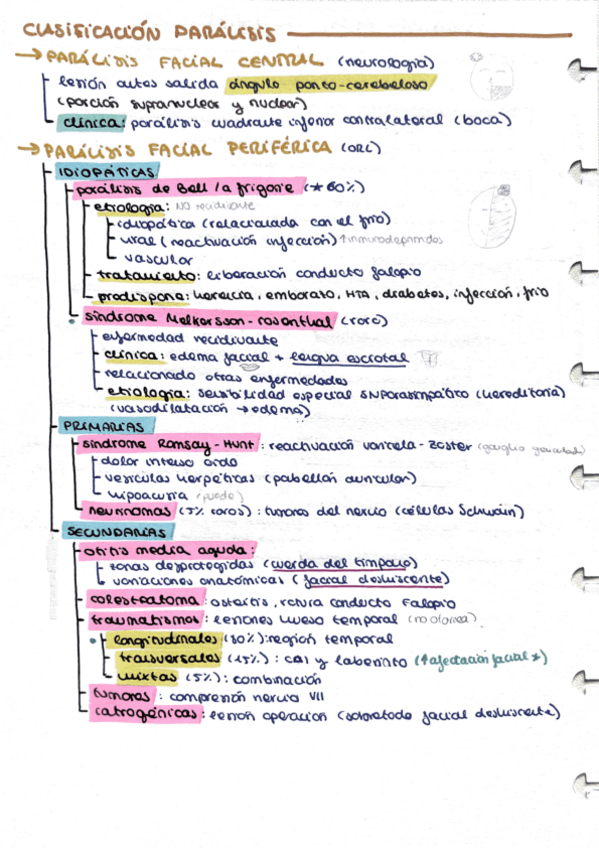 CLASIFICACIÓN PARÁLISIS
→ PARÁLISIS FACIAL CENTRAL (neurología)
lesión antes salida ángulo ponto-cerebeloso
(porción supranuclear y nuclear)
clínica: parálisis cuadrante inferior contralateral (boca)
→ PARÁLISIS FACIAL PERIFÉRICA (ORL)
IDIOPÁTICAS
parálisis de Bell / a frigore (* 60%)
etiología: NO recidivante
idiopática (relacionada con el frío)
viral (reactivación infección) ↑inmunodeprimidos
vascular
tratamiento: liberación conducto falopio
predispone: herencia, embarazo, HTA, diabetes, infección, frío
síndrome Melkersson-rosenthal (raro)
enfermedad recidivante
clínica: edema facial + lengua escrotal
relacionado otras enfermedades
etiología: sensibilidad especial SNParasimpático (hereditaria)
(vasodilatación → edema)
PRIMARIAS
síndrome Ramsay-Hunt: reactivación varicela-zoster (ganglio geniculado)
dolor intenso oído
vesículas herpéticas (pabellón auricular)
hipoacusia (puede)
neurinomas (5% raros): tumores del nervio (células Schwain)
SECUNDARIAS
otitis media aguda:
zonas desprotegidas (cuerda del tímpano)
variaciones anatómicas (facial dehiscente)
colesteatoma: osteítis, rotura conducto Falopio
traumatismos: lesiones hueso temporal
longitudinales (80%): región temporal
transversales (15%): CAI y laberinto (↑afectación facial *)
mixtas (5%): combinación
tumores: compresión nervio VII
iatrogénicas: lesión operación (sobretodo facial dehiscente)